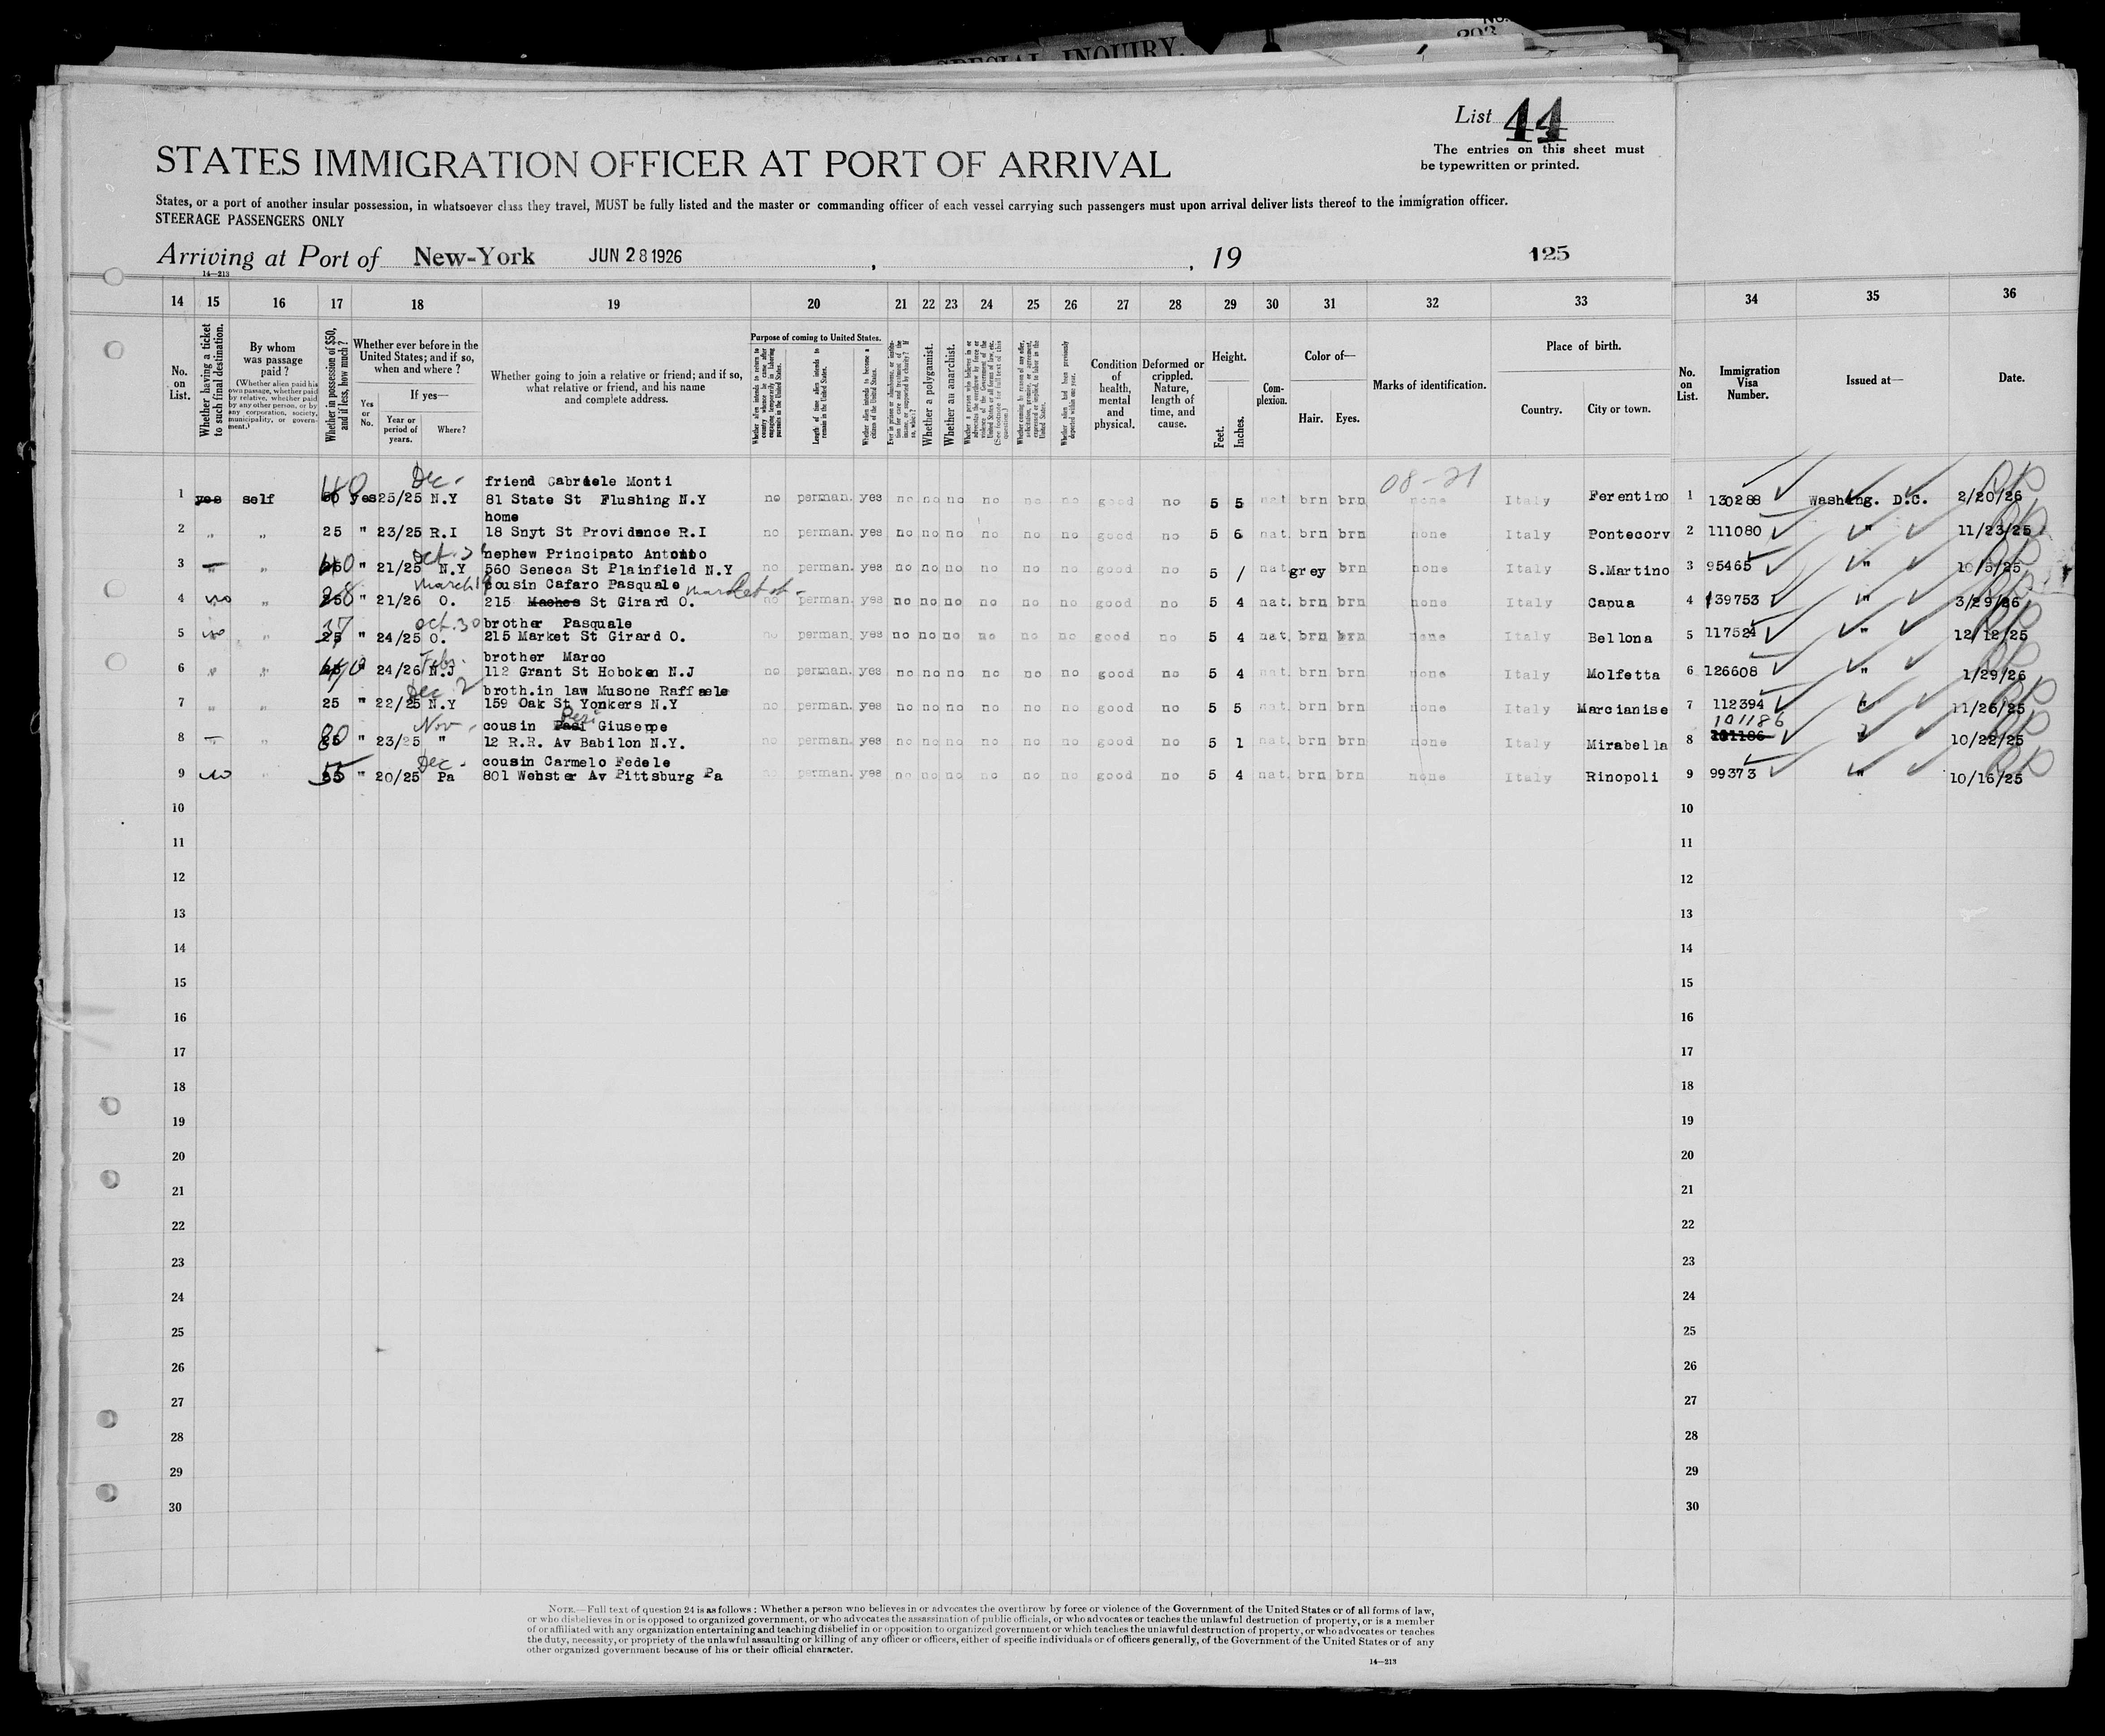 SPECIAL INQUIRY.
No.
293
List 44
The entries on this sheet must
be typewritten or printed.
STATES IMMIGRATION OFFICER AT PORT OF ARRIVAL
States, or a port of another insular possession, in whatsoever class they travel, MUST be fully listed and the master or commanding officer of each vessel carrying such passengers must upon arrival deliver lists thereof to the immigration officer.
STEERAGE PASSENGERS ONLY
Arriving at Port of New-York JUN 28 1926 , , 19 125
14—213
14 15 16 17 18 19 20 21 22 23 24 25 26 27 28 29 30 31 32 33 34 35 36
No. on List.
Whether having a ticket to such final destination.
By whom was passage paid?
(Whether alien paid his own passage, whether paid by relative, whether paid by any other person, or by any corporation, society, municipality, or government.)
Whether in possession of $50, and if less, how much?
Whether ever before in the United States; and if so, when and where?
Yes or No.
If yes—
Year or period of years.
Where?
Whether going to join a relative or friend; and if so, what relative or friend, and his name and complete address.
Purpose of coming to United States.
Whether alien intends to return to country whence he came after engaging temporarily in laboring pursuits in the United States.
Length of time alien intends to remain in the United States.
Whether alien intends to become a citizen of the United States.
Whether a polygamist.
Whether an anarchist.
Condition of health, mental and physical.
Deformed or crippled. Nature, length of time, and cause.
Height.
Feet.
Inches.
Complexion.
Color of—
Hair.
Eyes.
Marks of identification.
Place of birth.
Country.
City or town.
No. on List.
Immigration Visa Number.
Issued at—
Date.
Dec - friend Gabriele Monti 08-21
1 yes self 40 yes 25/25 N.Y 81 State St Flushing N.Y no perman. yes no no no no no no good no 5 5 nat brn brn none Italy Ferentino 1 130288 Washing. D.C. 2/20/26
home
2 " " 25 " 23/25 R.I 18 Snyt St Providence R.I no perman. yes no no no no no no good no 5 6 nat. brn brn none Italy Pontecorv 2 111080 " 11/23/25
Oct. nephew Principato Antonio
3 — " 40 " 21/25 N.Y 560 Seneca St Plainfield N.Y no perman. yes no no no no no no good no 5 / nat grey brn none Italy S.Martino 3 95465 " 10/5/25
March cousin Cafaro Pasquale Market st -
4 no " 28 " 21/26 O. 215 Maches St Girard O. no perman. yes no no no no no no good no 5 4 nat. brn brn none Italy Capua 4 139753 " 3/29/26
Oct. 30 brother Pasquale
5 no " 37 25 " 24/25 O. 215 Market St Girard O. no perman. yes no no no no no no good no 5 4 nat. brn brn none Italy Bellona 5 117524 " 12/12/25
Feb. brother Marco
6 " " 40 " 24/26 N.J 112 Grant St Hoboken N.J no perman. yes no no no no no no good no 5 4 nat. brn brn none Italy Molfetta 6 126608 " 1/29/26
Dec 2 broth.in law Musone Raffaele
7 " " 25 " 22/25 N.Y 159 Oak St Yonkers N.Y no perman. yes no no no no no no good no 5 5 nat. brn brn none Italy Marcianise 7 112394 " 11/26/25
Nov - cousin Giuseppe 101186
8 — " 80 " 23/25 " 12 R.R. Av Babilon N.Y. no perman. yes no no no no no no good no 5 1 nat. brn brn none Italy Mirabella 8 101186 " 10/22/25
Dec - cousin Carmelo Fedele
9 no " 55 " 20/25 Pa 801 Webster Av Pittsburg Pa no perman. yes no no no no no no good no 5 4 nat. brn brn none Italy Rinopoli 9 99373 " 10/16/25
10 10
11 11
12 12
13 13
14 14
15 15
16 16
17 17
18 18
19 19
20 20
21 21
22 22
23 23
24 24
25 25
26 26
27 27
28 28
29 29
30 30
NOTE.—Full text of question 24 is as follows: Whether a person who believes in or advocates the overthrow by force or violence of the Government of the United States or of all forms of law,
or who disbelieves in or is opposed to organized government, or who advocates the assassination of public officials, or who advocates or teaches the unlawful destruction of property, or is a member
of or affiliated with any organization entertaining and teaching disbelief in or opposition to organized government or which teaches the unlawful destruction of property, or who advocates or teaches
the duty, necessity, or propriety of the unlawful assaulting or killing of any officer or officers, either of specific individuals or of officers generally, of the Government of the United States or of any
other organized government because of his or their official character.
14—213